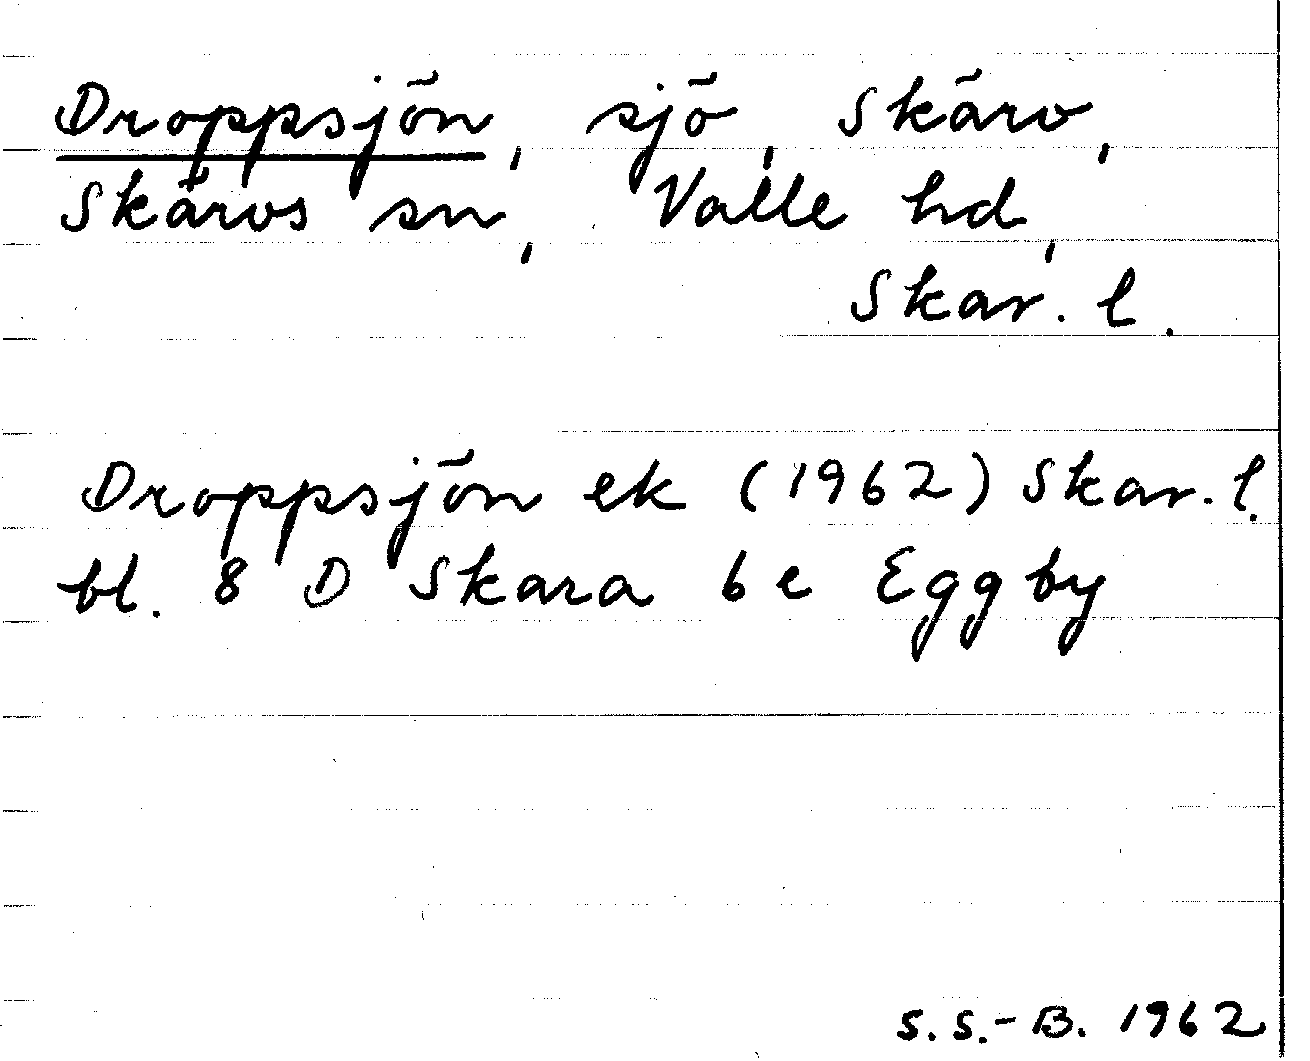 Droppsjön, sjö, Skärv,
Skärvs sn, Valle hd,
Skar. l.
Droppsjön ek (1962) Skar. l.
bl. 8 D Skara 6 e Eggby
S. S.-B. 1962